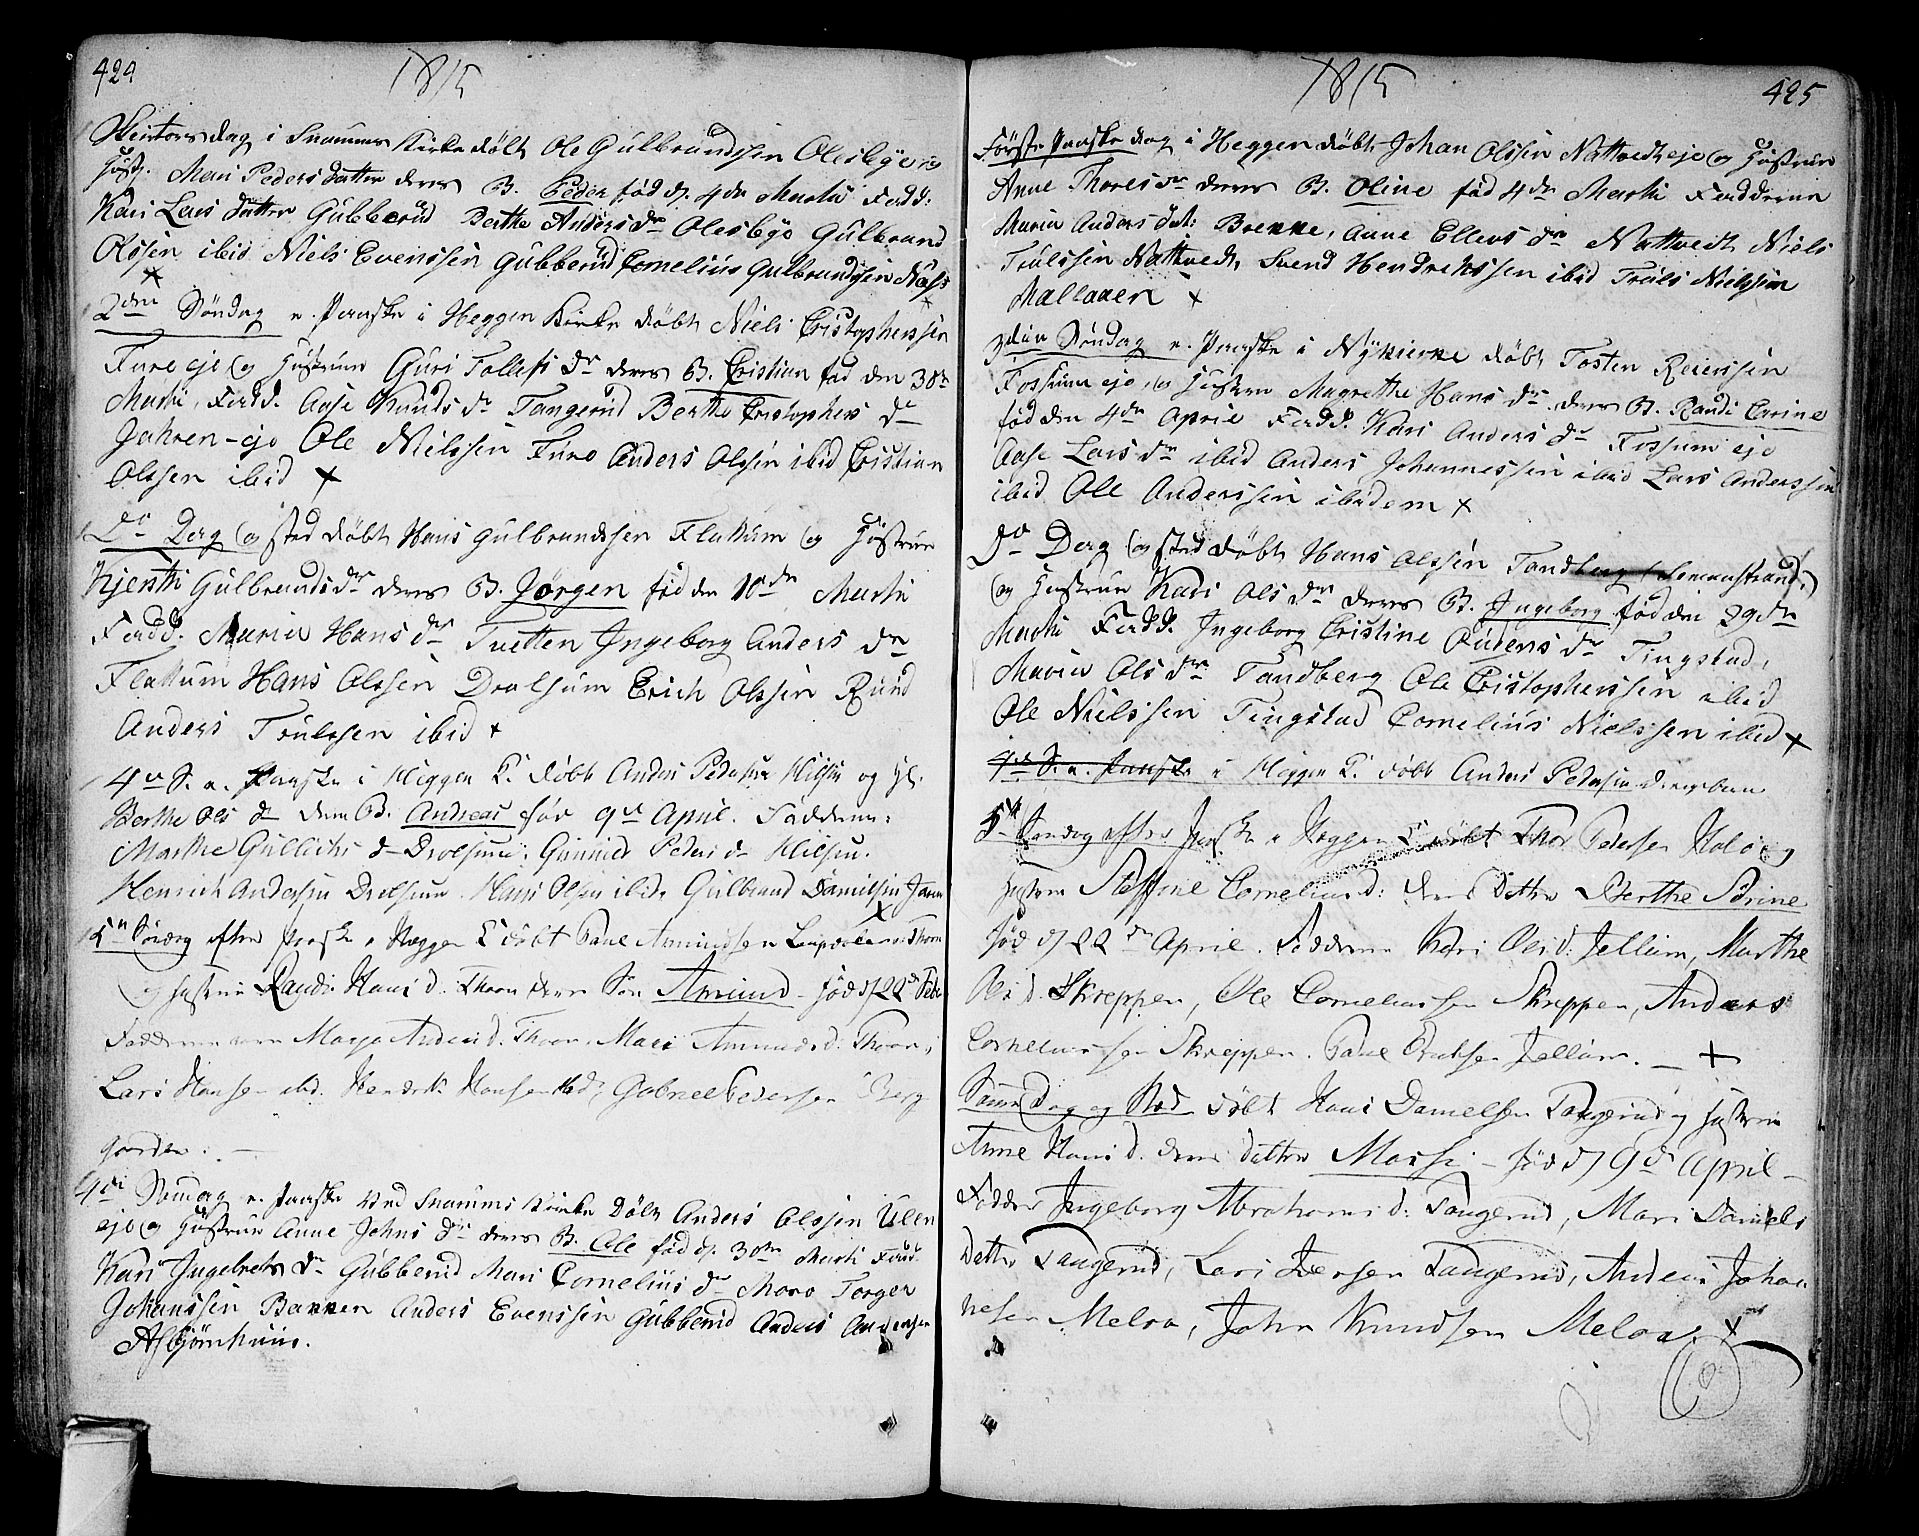 424
1815
Skiertorsdag i Snarums Kirke døbt Ole Gulbrandssen Olesbyeie
Hust. Mari Pedersdatter deres B. Peder fød d. 4de Martii Fadd:
Kari Larsdatter Gubberud Berthe Anders dr Olesbye Gulbrand
Olssen ibid Niels Evenssen Gubberud Cornelius Gulbrandssen Næss
2den Søndag e. Paaske i Heggen Kirke døbt Niels Cristopherssen
Fure eje og Hustrue Guri Tollefs dr deres B. Cristian fød den 30te
Martii, Fadd. Aase Knuds dr Tangerud Berthe Cristophers dr
Jahren-eje Ole Nielssen Fure Anders Olssen ibid Cristian
Olssen ibid
Do Dag og sted døbt Hans Gulbrandssen Flattum og Hustrue
Kjersti Gulbrands dr deres B. Jørgen fød den 10de Martii
Fadd. Maria Hans dr Tvetten Ingeborg Anders dr
Flattum Hans Olssen Dralsum Erich Olssen Rund
Anders Trulssen ibid
4de S. e. Paaske i Heggen K. døbt Anders Pedersen Hilsen og H.
Berthe Ols d deres B. Andreas fød 9de April. Faddere:
Marthe Gullichs d Drolsum, Gunnild Peders d Hilsen.
Henrich Andersen Drolsum Hans Olsen ibid, Gulbrand Danielsen
5te Søndag efter Paaske i Heggen K døbt Paul Amundsen Thorn
og Hustrue Randi Hans d. Thorn deres Søn Amund fød d 22de Febr
Faddere vare Marja Anders d. Thorn, Mari Amunds d. Thorn,
Lars Hansen ibd. Hendrik Hansen ibd, Gabriel Pedersen Berg
gaarden.
4de Søndag e. Paaske ved Snarums Kirke Døbt Anders Olssen Ulen
eje og Hustrue Anne Johns dr deres B. Ole fød d. 30te Martii Fadd.
Kari Ingebrets dr Gubberud Mari Cornelius dr Moro Torger
Johanssen Bakken Anders Evenssen Gubberud Anders Anderssen
Asbjørnhuus.
425
1815
Første Paaske dag i Heggen døbt Johan Olssen Nattvedt eje og Hustrue
Anne Thores dr deres B. Oline fød 4de Martii Fadderne
Maria Anders dat: Brekke, Anne Ellevs dr Nattvedt Niels
Trulssen Nattvedt, Svend Hendrikssen ibid Truls Nielssen
Møllaaen
3die Søndag e. Paaske i Nykierke døbt Tosten Reierssen
Fossum eje, og Hustrue Magrethe Hans dr deres B. Randi Carine
fød den 4de April Fadd. Kari Anders dr Fossum eje
Aase Lars dr ibid Anders Johannessen ibid Lars Anderssen
ibid Ole Anderssen ibidem
Do Dag og sted døbt Hans Olssen Tandberg
og Hustrue Kari Ols dr deres B. Ingeborg fød den 29de
Martii Fadd. Ingeborg Cristine Anders dr Tingstad,
Maria Ols dr Tandberg Ole Cristopherssen ibid
Ole Nielssen Tingstad Cornelius Nielssen ibid
4de S. e. Paaske i Heggen K. døbt Anders Pedersen
5te Søndag efter Paaske i Heggen K døbt Thor Pedersen Hole og
Hustrue Steffine Cornelius d: deres Datter Berthe Sørine
fød d 22de April. Faddere Kari Ols d. Jellum, Marthe
Ols d. Skreppen, Ole Corneliussen Skreppen, Anders
Corneliussen Skreppen. Paul Jellum.
Samme Dag og Sted døbt Hans Danielsen Tangerud og Hustrue
Anne Hans d. deres datter Massi fød d 9de April
Faddere Ingeborg Abrahams d: Tangerud, Mari Daniels
Datter Tangerud, Lars Iversen Tangerud, Anders Johan
nesen Meloa, John Knudsen Meloa.